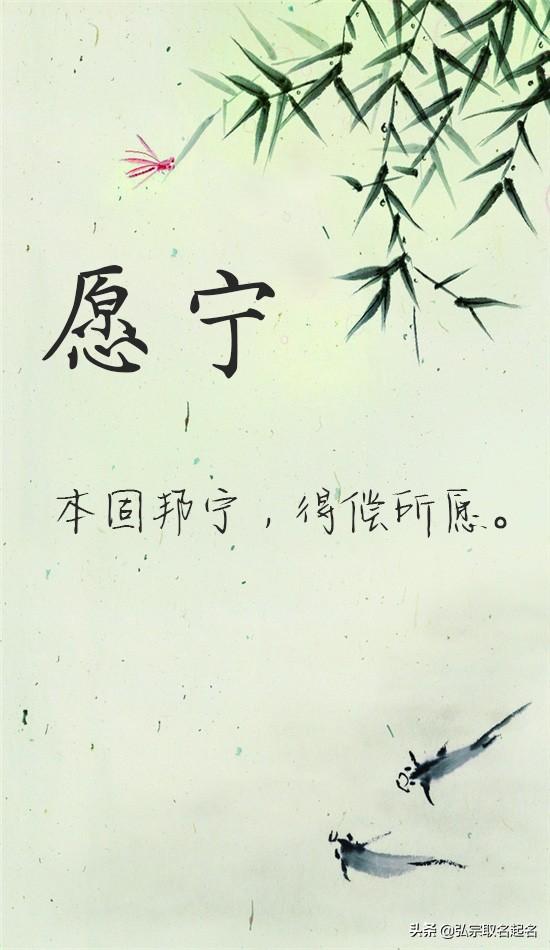 愿宁
本固邦宁，得偿所愿。
头条 @弘宗取名起名